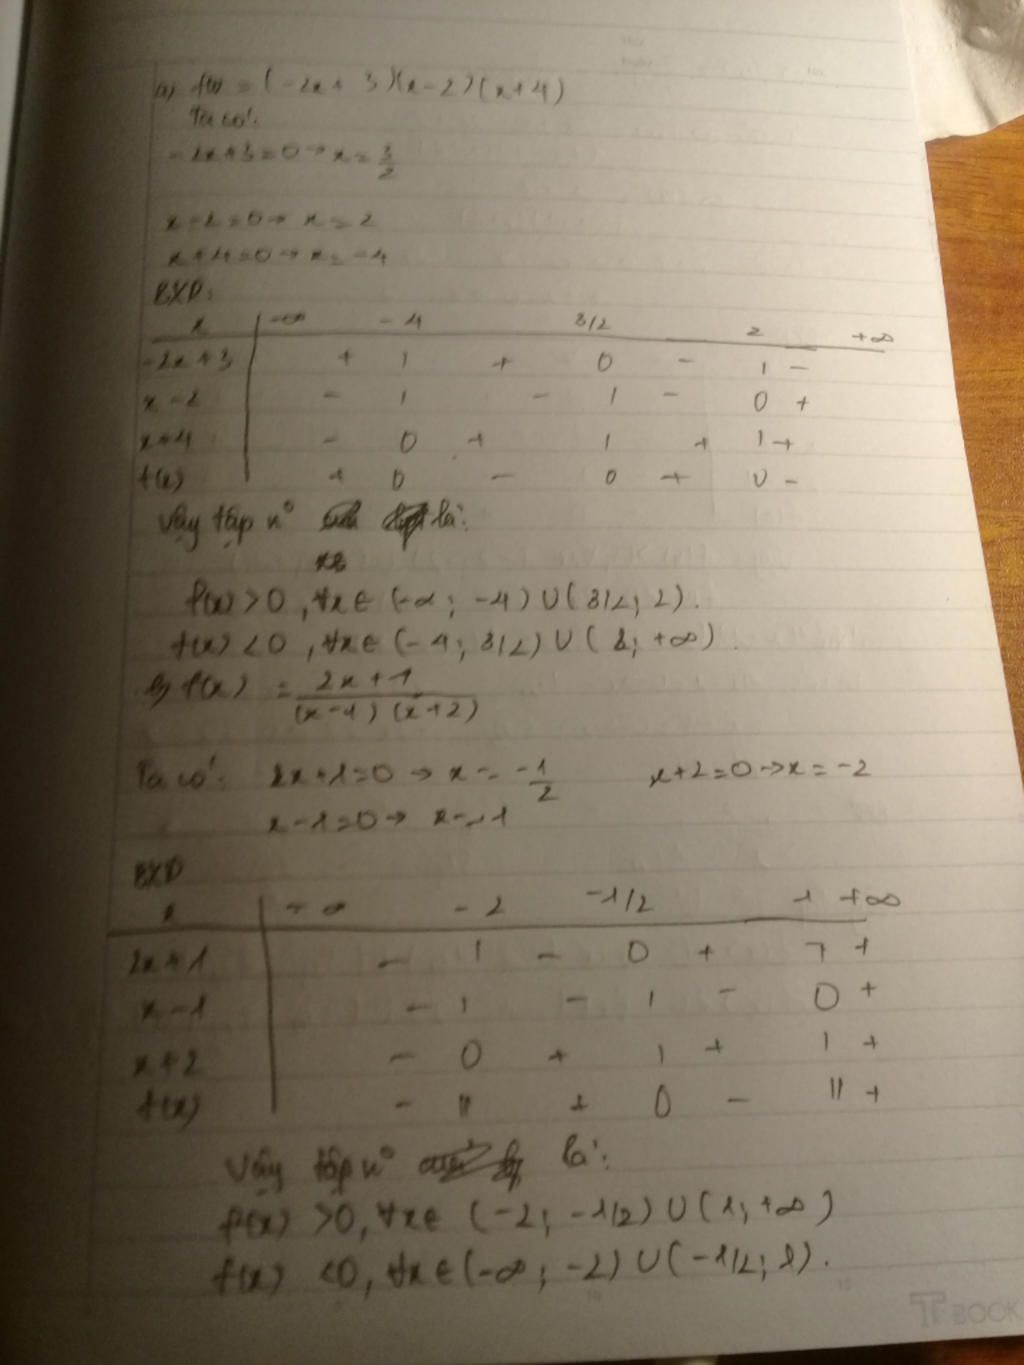 a) f(x) = (-2x + 3)(x - 2)(x + 4)
Ta có:
-2x+3=0 → x = 3/2
x - 2 = 0 → x = 2
x + 4 = 0 → x = -4
BXD:
x -∞ -4 3/2 2 +∞
-2x + 3 + | + 0 - | -
x - 2 - | - | - 0 +
x+4 - 0 + | + | +
f(x) + 0 - 0 + 0 -
Vậy tập n° là:
f(x) > 0, ∀x ∈ (-∞; -4) ∪ (3/2; 2).
f(x) < 0, ∀x ∈ (-4; 3/2) ∪ (2; +∞).
b) f(x) = (2x + 1)/((x - 1)(x + 2))
Ta có: 2x + 1 = 0 → x = -1/2 x + 2 = 0 → x = -2
x - 1 = 0 → x = 1
BXD
x -∞ -2 -1/2 1 +∞
2x + 1 - | - 0 + | +
x - 1 - | - | - 0 +
x + 2 - 0 + | + | +
f(x) - || + 0 - || +
Vậy tập n° là:
f(x) > 0, ∀x ∈ (-2; -1/2) ∪ (1; +∞)
f(x) < 0, ∀x ∈ (-∞; -2) ∪ (-1/2; 1).
BOOK